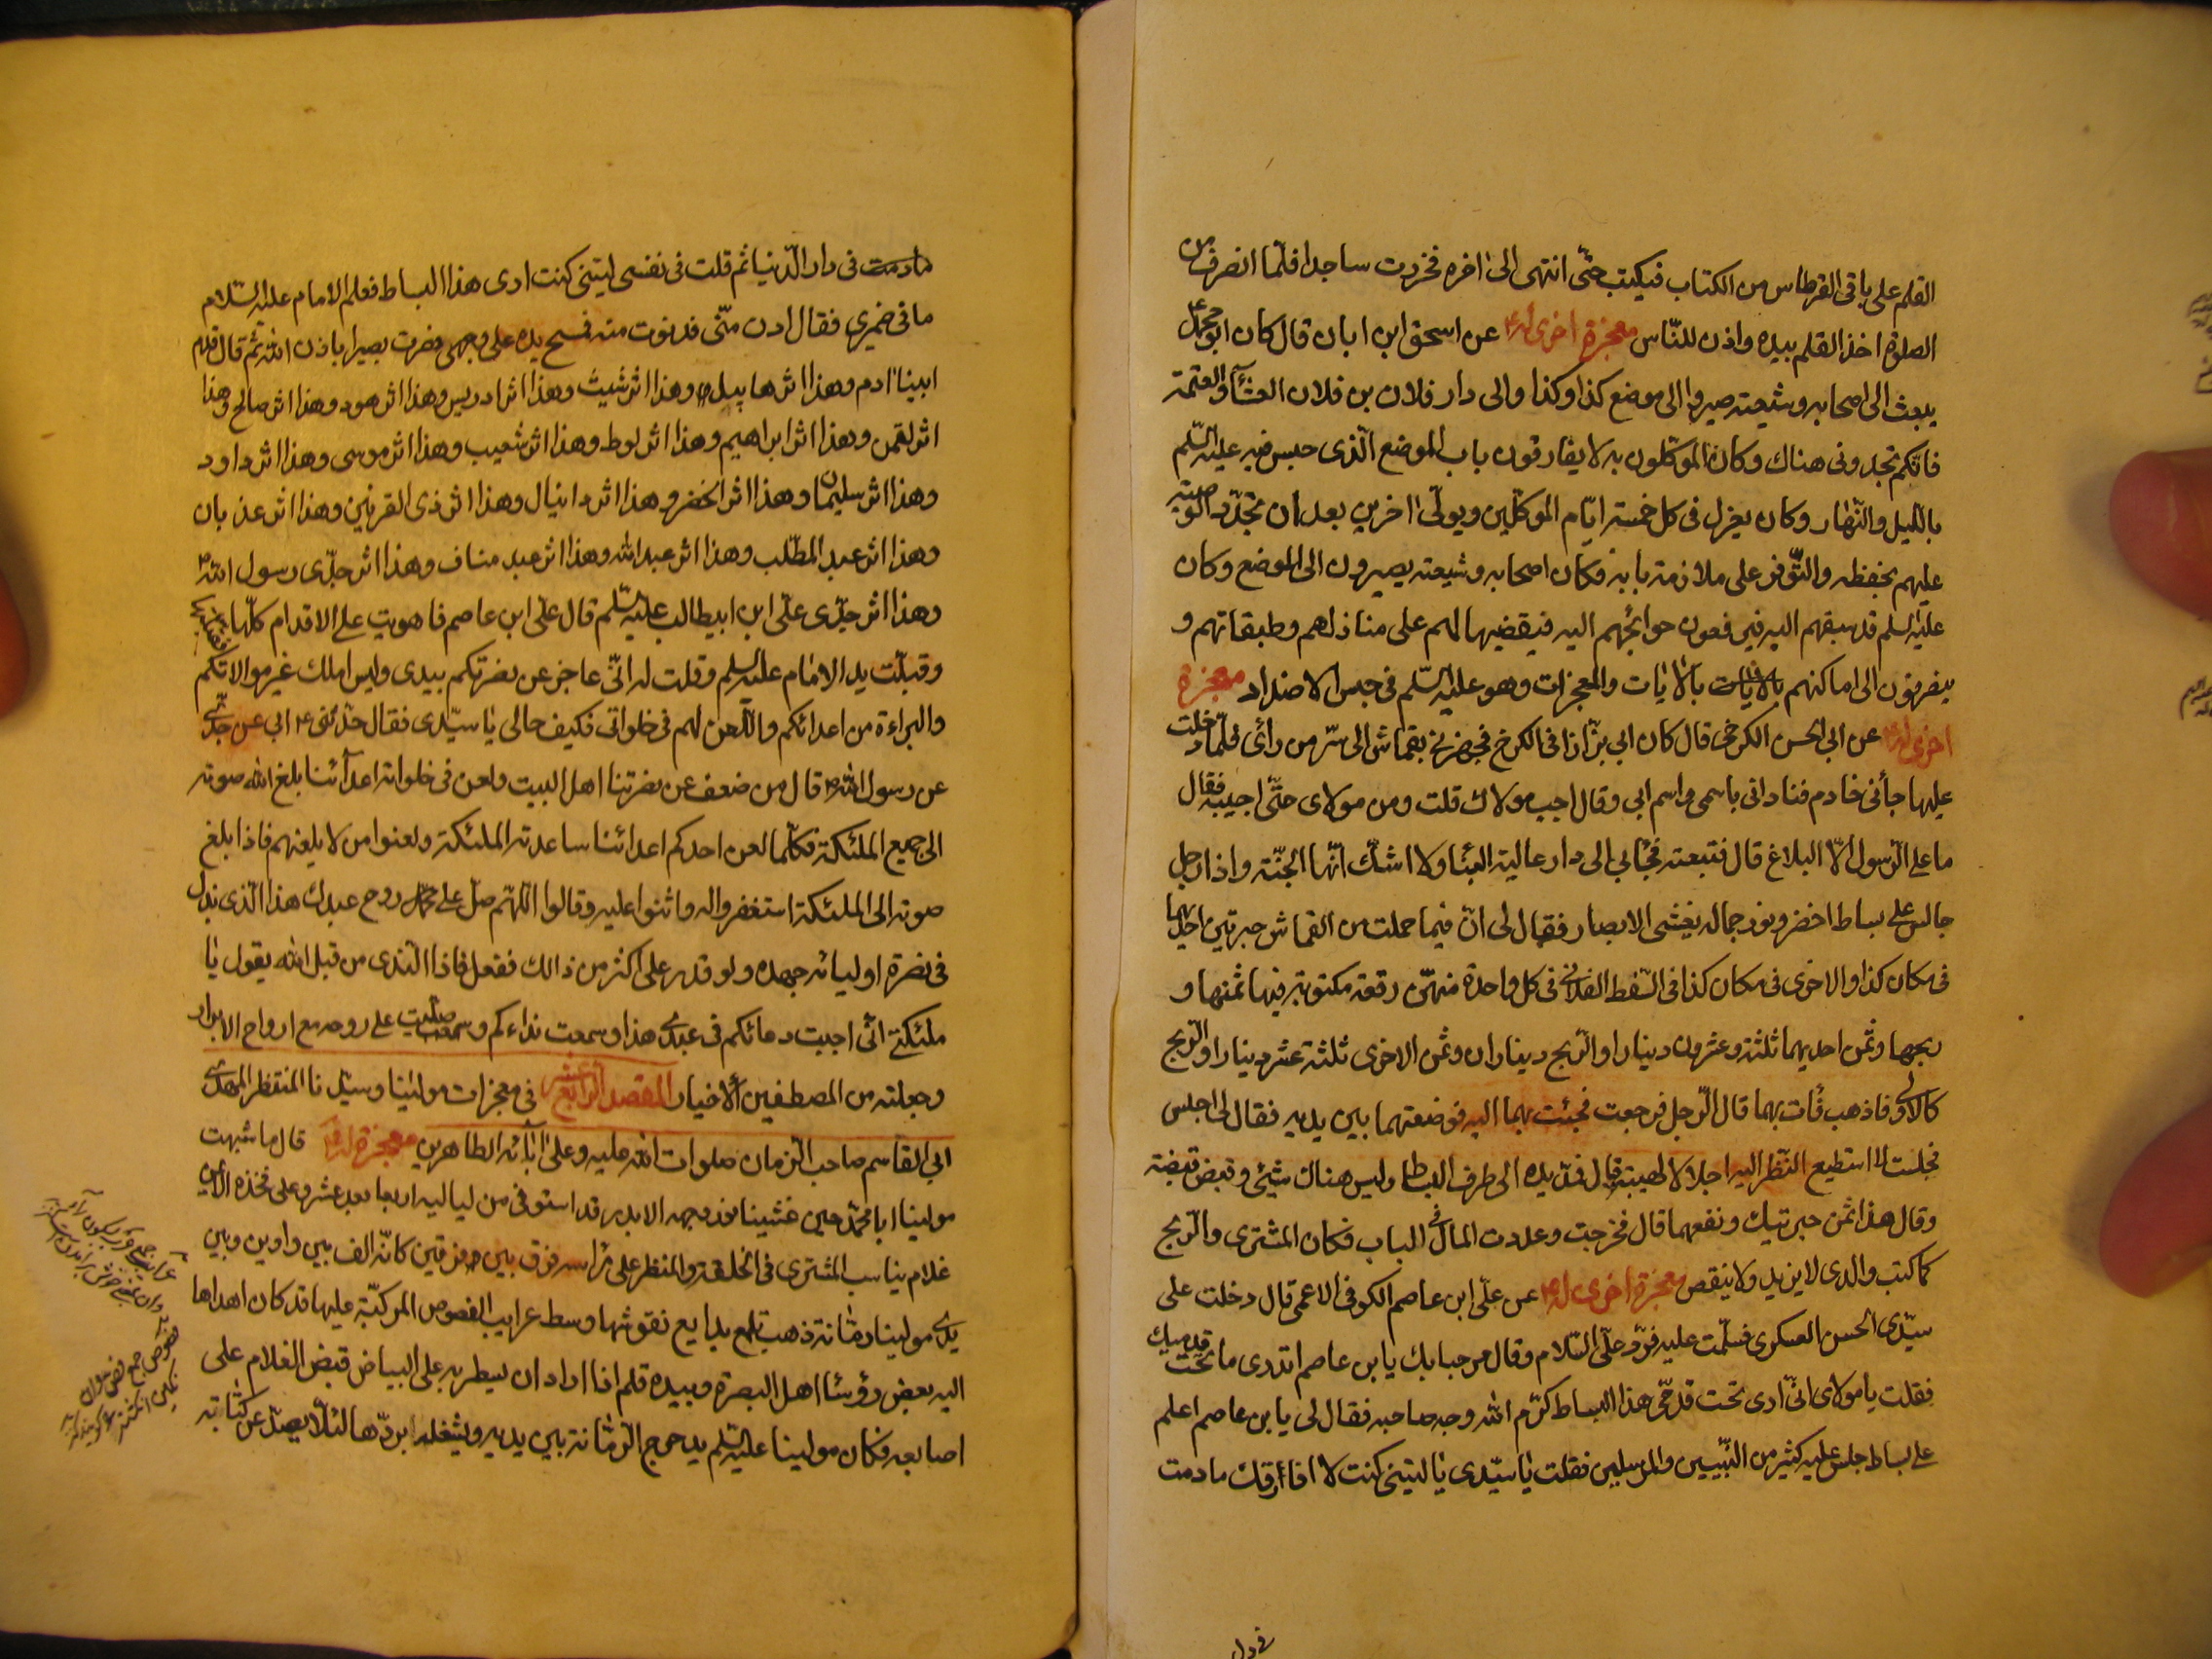 القلم على باقى القرطاس من الكتاب فيكتب حتّى انتهى الى اخره فخررت ساجدا فلمّا انصرف من
الصلوة اخذ القلم بيده واذن للنّاس معجزة اخرى له ع عن اسحق ابن ابان قال كان ابو محمّد ع
يبعث الى اصحابه وشيعته صيروا الى موضع كذا وكذا والى دار فلان بن فلان العشآء والعتمة
فانّكم تجدونى هناك وكان الموكّلون به لا يفارقون باب الموضع الّذى حبس فيه عليه السّلم
باللّيل والنّهار وكان يعزل فى كل خمسة ايّام الموكّلين ويولّى اخرين بعد ان تجدّد الوصيّة
عليهم بحفظه والتّوفر على ملازمة بابه فكان اصحابه وشيعته يصيرون الى الموضع وكان
عليه السلم قد سبقهم اليه فيرفعون حوائجهم اليه فيقضيها لهم على منازلهم وطبقاتهم و
ينصرفون الى اماكنهم بالايات بالايات والمعجزات وهو عليه السّلم فى حبس الاضداد معجزة
اخرى له ع عن ابى الحسن الكرخى قال كان ابى بزّازا فى الكرخ فجهزنى بقماش الى سرّ من رأى فلمّا دخلت
عليها جأنى خادم فنادانى باسمى واسم ابى وقال اجب مولاك قلت ومن مولاى حتّى اجيبه فقال
ما على الرّسول الّا البلاغ قال فتبعته فجأ بى الى دار عالية البنأ ولا اشكّ انّها الجنّة واذا رجل
جالس على بساط اخضر ونور جماله يغشى الابصار فقال لى انّ فيما حملت من القماش حبرتين احديهما
فى مكان كذا والاخرى فى مكان كذا فى السّفط الفلانى فى كل واحدة منهنّ رقعة مكتوبة فيها ثمنها و
ربحها وثمن احديهما ثلثة وعشرون دينارا والرّبح ديناران وثمن الاخرى ثلثة عشر دينارا والرّبح
كالاولى فاذهب فأت بهما قال الرّجل فرجعت فجئت بهما اليه فوضعتهما بين يديه فقال لى اجلس
فجلست لا استطيع النّظر اليه اجلالا لهيبته قال فمدّ يده الى طرف البساط وليس هناك شيئى وقبض قبضة
وقال هذا ثمن حبرتيك وربحهما قال فخرجت وعددت المال فى الباب فكان المشترى والرّبح
كما كتب والدى لا يزيد ولا ينقص معجزة اخرى له ع عن علّى ابن عاصم الكوفى الاعمى قال دخلت على
سيّدى الحسن العسكرى فسلّمت عليه فردّ علىّ السّلام وقال مرحبا بك يا بن عاصم اتدرى ما تحت قدميك
فقلت يا مولاى انّى ارى تحت قدمّى هذا البساط كرّم الله وجه صاحبه فقال لى يا بن عاصم اعلم
انّك على بساط جلس عليه كثير من النّبيّين والمرسلين فقلت يا سيّدى يا ليتنى كنت لا افارقك ما دمت
فى دار
ما دمت فى دار الدّنيا ثم قلت فى نفسى ليتنى كنت ارى هذا البساط فعلم الامام عليه السّلام
ما فى ضميرى فقال ادن منّى فدنوت منه فمسح يده على وجهى فصرت بصيرا باذن الله ثم قال هذا قدم
ابينا ادم وهذا اثر هابيل وهذا اثر شيث وهذا اثر ادريس وهذا اثر هود وهذا اثر صالح وهذا
اثر لقمن وهذا اثر ابراهيم وهذا اثر لوط وهذا اثر شعيب وهذا اثر موسى وهذا اثر داود
وهذا اثر سليمان وهذا اثر الخضر وهذا اثر دانيال وهذا اثر ذى القرنين وهذا اثر عدنان
وهذا اثر عبد المطّلب وهذا اثر عبد الله وهذا اثر عبد مناف وهذا اثر جدّى رسول الله ص
وهذا اثر جدّى علّى ابن ابيطالب عليه السّلم قال علّى ابن عاصم فاهويت على الاقدام كلّها فقبّلتها
وقبّلت يد الامام عليه السلم وقلت له انّى عاجز عن نصرتكم بيدى وليس املك غير موالاتكم
والبراءة من اعدائكم واللّعن لهم فى خلواتى فكيف حالى يا سيّدى فقال حدّثنى ابى عن جدّى
عن رسول الله ص قال من ضعف عن نصرتنا اهل البيت ولعن فى خلواته اعدآئنا بلغ الله صوته
الى جميع الملئكة فكلّما لعن احدكم اعدائنا ساعدته الملئكة ولعنوا من لا يلعنهم فاذا بلغ
صوته الى الملئكة استغفروا له واثنوا عليه وقالوا اللّهمّ صلّ على محمّد روح عبدك هذا الّذى بذل
فى نصرة اوليائه جهده ولو قدر على اكثر من ذالك ففعل فاذا النّدى من قبل الله يقول يا
ملئكتى انّى اجبت دعائكم فى عبدى هذا وسمعت نداءكم وصلّيت على روحه مع ارواح الابرار
وجعلته من المصطفين الاخيار المقصد الرّابع عشر فى معجزات مولينا وسيّدنا المنتظر المهدى
ابى القاسم صاحب الزّمان صلوات الله عليه وعلى ابآئه الطاهرين معجزة له ع قال ما شبهت
مولينا ابا محمّد حين غشينا نور وجهه الا بدر قد استوفى من لياليه اربعا بعد عشر وعلى فخذه الايمن
غلام يناسب المشترى فى الخلقة والمنظر على رأسه فرق بين وفرتين كانّه الف بين واوين وبين
يدى مولينا رمّانة ذهب تلمع بدايع نقوشها وسط غرايب الفصوص المركبّة عليها قد كان اهداها
اليه بعض رؤسأ اهل البصرة وبيده قلم اذا اراد ان يسطر به على البياض قبض الغلام على
اصابعه فكان مولينا عليه السّلم يدحرج الرّمّانة بين يديه ويشغله بردّها لئلّا يصدّ عن كتابته